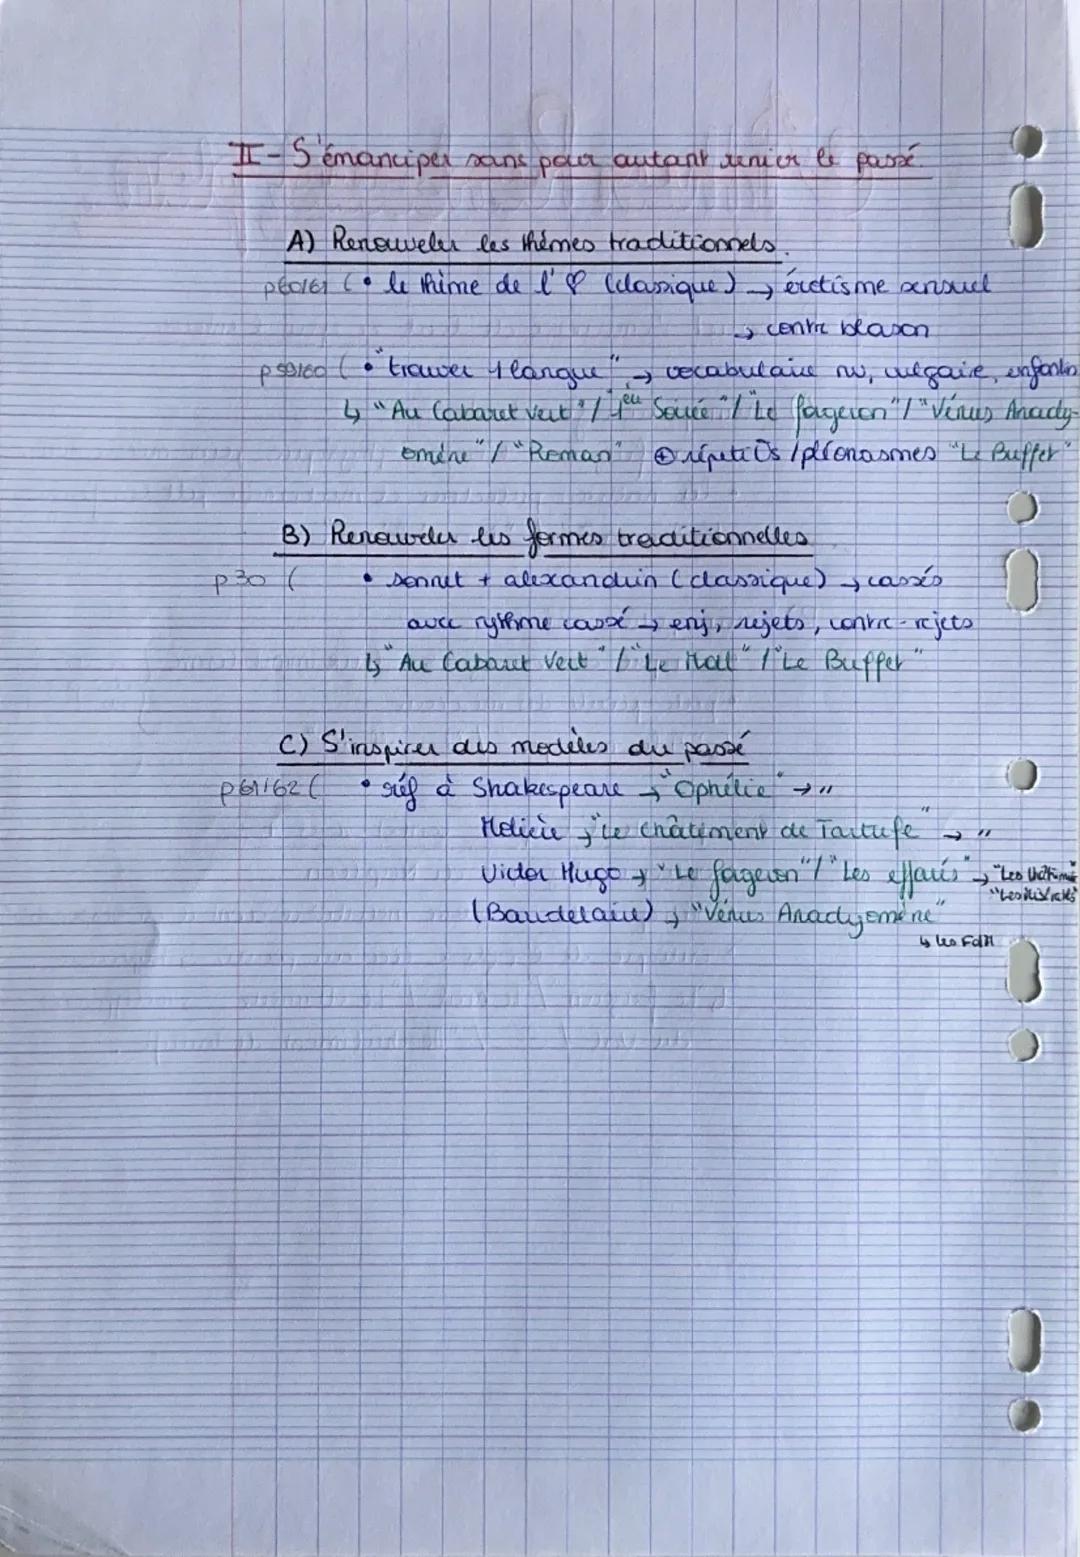 II - S'émanciper sans pour autant renier le passé
A) Renouveler les thèmes traditionnels.
p60/61 ( • le thème de l'♡ (classique) → érotisme sensuel
→ contre blason
p59/60 ( • "trouver 1 langue" → vocabulaire nv, vulgaire, enfantin
↳ "Au Cabaret Vert" / 1ère Soirée" / "Le forgeron" / "Vénus Anady-
omène" / "Roman" ⊕ répétit°s / pléonasmes "Le Buffet"
B) Renouveler les formes traditionnelles
p30 ( • sonnet + alexandrin (classique) → cassés
avec rythme cassé → enj, rejets, contre-rejets
↳ "Au Cabaret Vert" / "Le Mal" / "Le Buffet"
C) S'inspirer des modèles du passé
p61/62 ( • réf à Shakespeare → "Ophélie" → "
Molière → "Le châtiment de Tartufe" → "
Victor Hugo → "Le forgeron" / "Les effarés" → "Les Châtiments"
"Les Misérables"
(Baudelaire) → "Vénus Anadyomène"
↳ les FdM